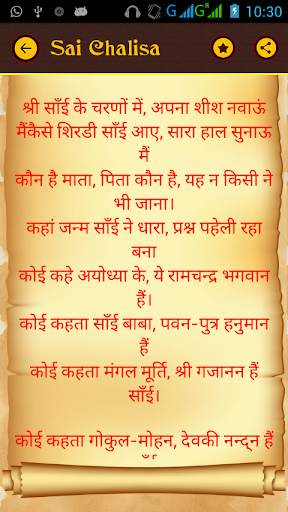 G G R 10:30
Sai Chalisa
श्री साँई के चरणों में, अपना शीश नवाऊं
मैंकैसे शिरडी साँई आए, सारा हाल सुनाऊ
मैं
कौन है माता, पिता कौन है, यह न किसी ने
भी जाना।
कहां जन्म साँई ने धारा, प्रश्न पहेली रहा
बना
कोई कहे अयोध्या के, ये रामचन्द्र भगवान
हैं।
कोई कहता साँई बाबा, पवन-पुत्र हनुमान
हैं
कोई कहता मंगल मूर्ति, श्री गजानन हैं
साँई।
कोई कहता गोकुल-मोहन, देवकी नन्द्न हैं